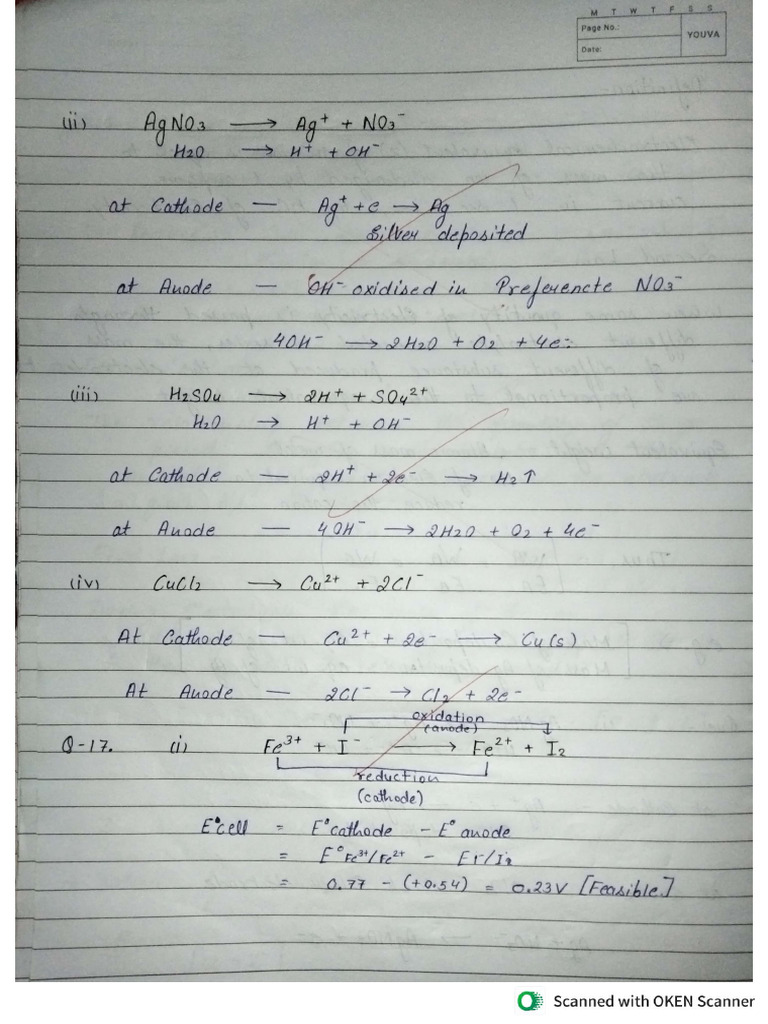 M T W T F S S
Page No.:
YOUVA
Date:
(ii) AgNO3 ⟶ Ag⁺ + NO3⁻
H2O ⟶ H⁺ + OH⁻
at Cathode — Ag⁺ + e ⟶ Ag
Silver deposited
at Anode — OH⁻ oxidised in Preferencte NO3⁻
4OH⁻ ⟶ 2H2O + O2 + 4e⁻
(iii) H2SO4 ⟶ 2H⁺ + SO4²⁺
H2O → H⁺ + OH⁻
at Cathode — 2H⁺ + 2e⁻ ⟶ H2↑
at Anode — 4OH⁻ ⟶ 2H2O + O2 + 4e⁻
(iv) CuCl2 ⟶ Cu²⁺ + 2Cl⁻
At Cathode — Cu²⁺ + 2e⁻ ⟶ Cu(s)
At Anode — 2Cl⁻ → Cl2 + 2e⁻
oxidation
(anode)
Q-17. (i) Fe³⁺ + I⁻ ⟶ Fe²⁺ + I2
reduction
(cathode)
E°cell = E°cathode – E°anode
= E°Fe³⁺/Fe²⁺ – EI⁻/I2
= 0.77 – (+0.54) = 0.23V [Feasible]
Scanned with OKEN Scanner